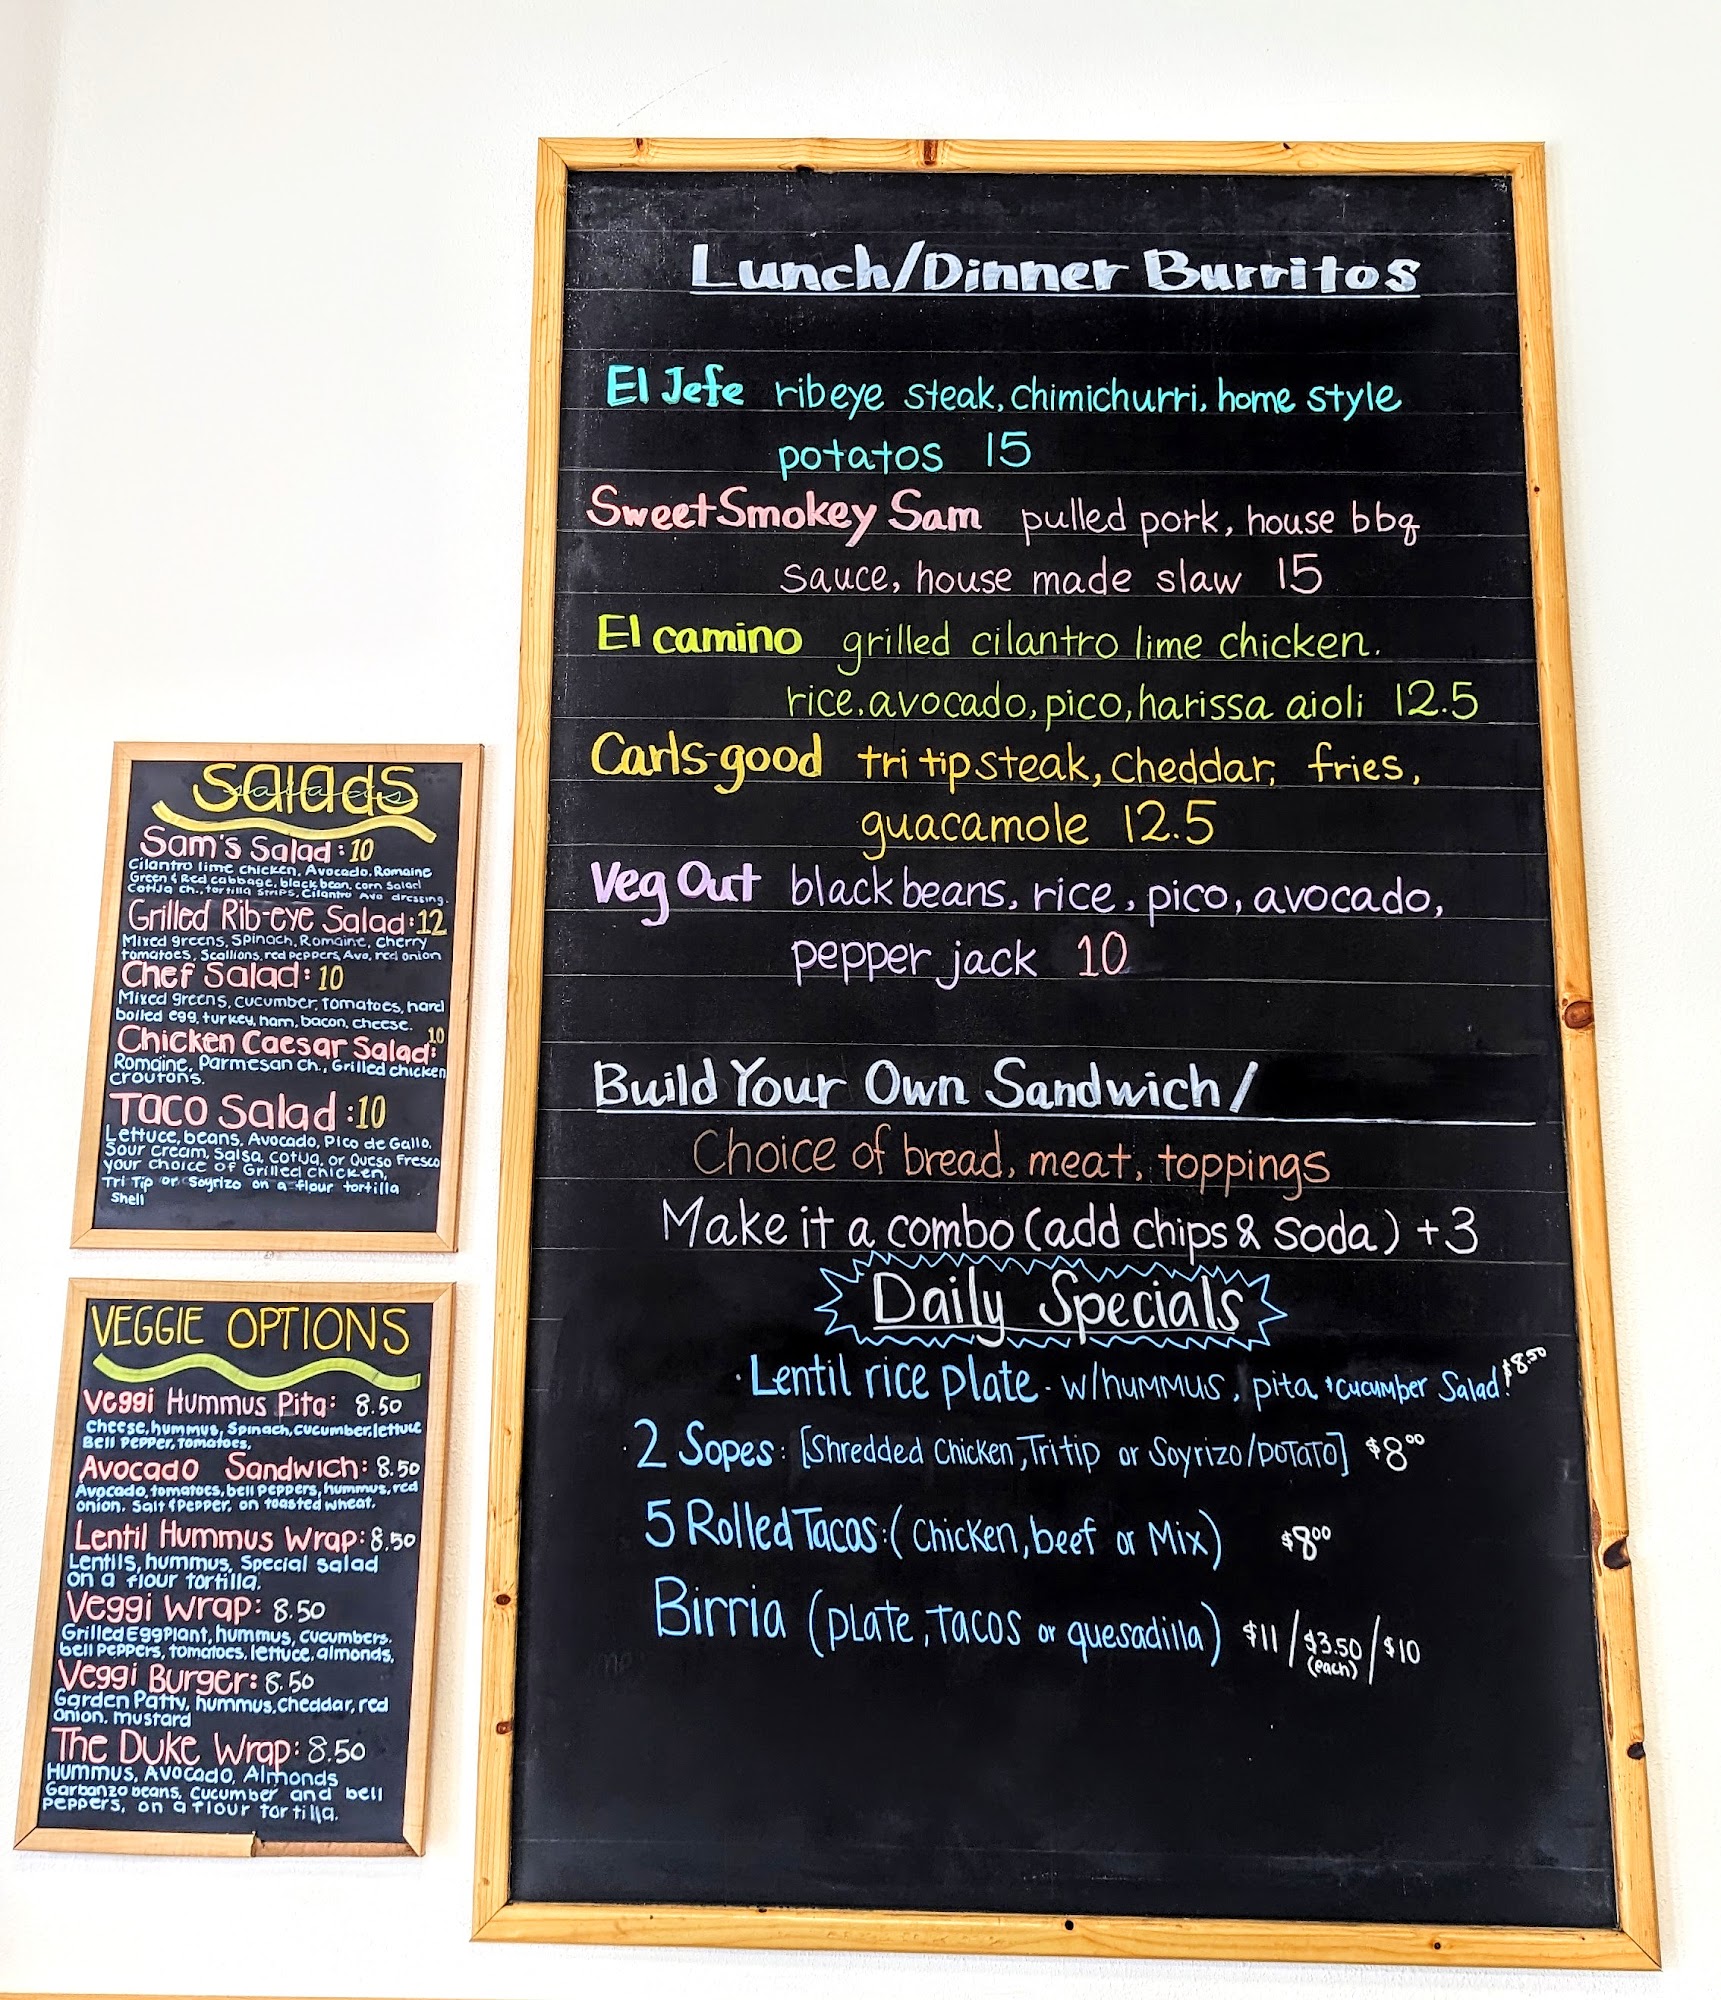 Lunch/Dinner Burritos
El Jefe ribeye steak, chimichurri, home style
potatos 15
Sweet Smokey Sam pulled pork, house bbq
sauce, house made slaw 15
El camino grilled cilantro lime chicken.
rice, avocado, pico, harissa aioli 12.5
Carls-good tri tip steak, cheddar, fries,
guacamole 12.5
Veg Out black beans, rice, pico, avocado,
pepper jack 10
Build Your Own Sandwich/
Choice of bread, meat, toppings
Make it a combo (add chips & soda) +3
Daily Specials
· Lentil rice plate - w/hummus, pita & cucumber salad! $8.50
· 2 Sopes: [Shredded Chicken, Tritip or Soyrizo/potato] $8.00
5 Rolled Tacos: (Chicken, beef or Mix) $8.00
Birria (plate, tacos or quesadilla) $11/$3.50/$10
(each)
Salads
Sam's Salad: 10
Cilantro lime chicken, Avocado, Romaine
Green & Red cabbage, black bean, corn salad
Cotija ch., tortilla strips, Cilantro Avo dressing.
Grilled Rib-eye Salad: 12
Mixed greens, Spinach, Romaine, Cherry
tomatoes, Scallions, red peppers, Avo, red onion
Chef Salad: 10
Mixed greens, cucumber, tomatoes, hard
boiled egg, turkey, ham, bacon, cheese.
Chicken Caesar Salad: 10
Romaine, Parmesan ch., Grilled chicken
croutons.
Taco Salad: 10
Lettuce, beans, Avocado, Pico de Gallo,
Sour cream, Salsa, Cotija, or Queso Fresco
your choice of Grilled chicken,
Tri Tip or Soyrizo on a flour tortilla
shell
VEGGIE OPTIONS
Veggi Hummus Pita: 8.50
Cheese, hummus, Spinach, cucumber, lettuce
Bell pepper, tomatoes,
Avocado Sandwich: 8.50
Avocado, tomatoes, bell peppers, hummus, red
onion. Salt & Pepper, on toasted wheat.
Lentil Hummus Wrap: 8.50
Lentils, hummus, Special salad
on a flour tortilla.
Veggi Wrap: 8.50
Grilled Eggplant, hummus, cucumbers.
bell peppers, tomatoes, lettuce, almonds,
Veggi Burger: 8.50
Garden Patty, hummus, cheddar, red
onion. mustard
The Duke Wrap: 8.50
Hummus, Avocado, Almonds
Garbanzo beans, cucumber and bell
peppers, on a flour tortilla.